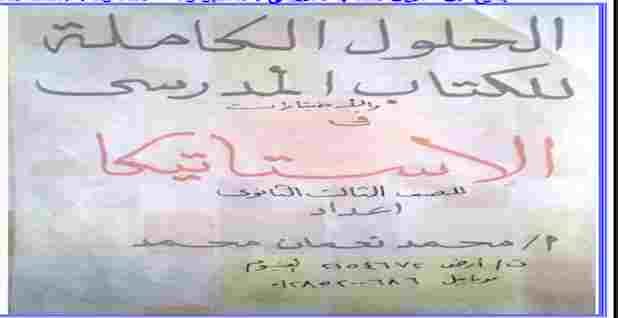 الحلول الكاملة
للكتاب المدرسى
والاختبارات
فى
الإستاتيكا
للصف الثالث الثانوى
إعداد
م/ محمد نعمان محمد
ت/ أرضى ٢١٥٤٦٧٢
موبايل